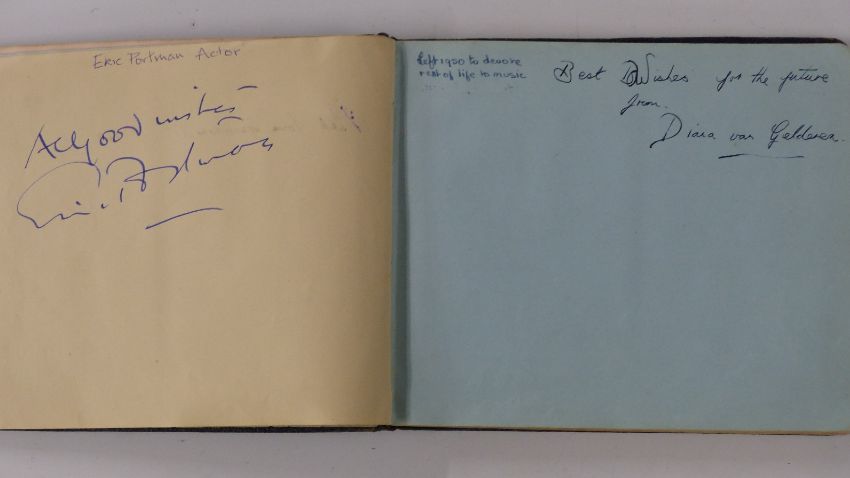 Eric Portman Actor
All good wishes
Eric Portman
Left 1920 to devote
rest of life to music
Best Wishes for the future
from
Diana van Gelderen.